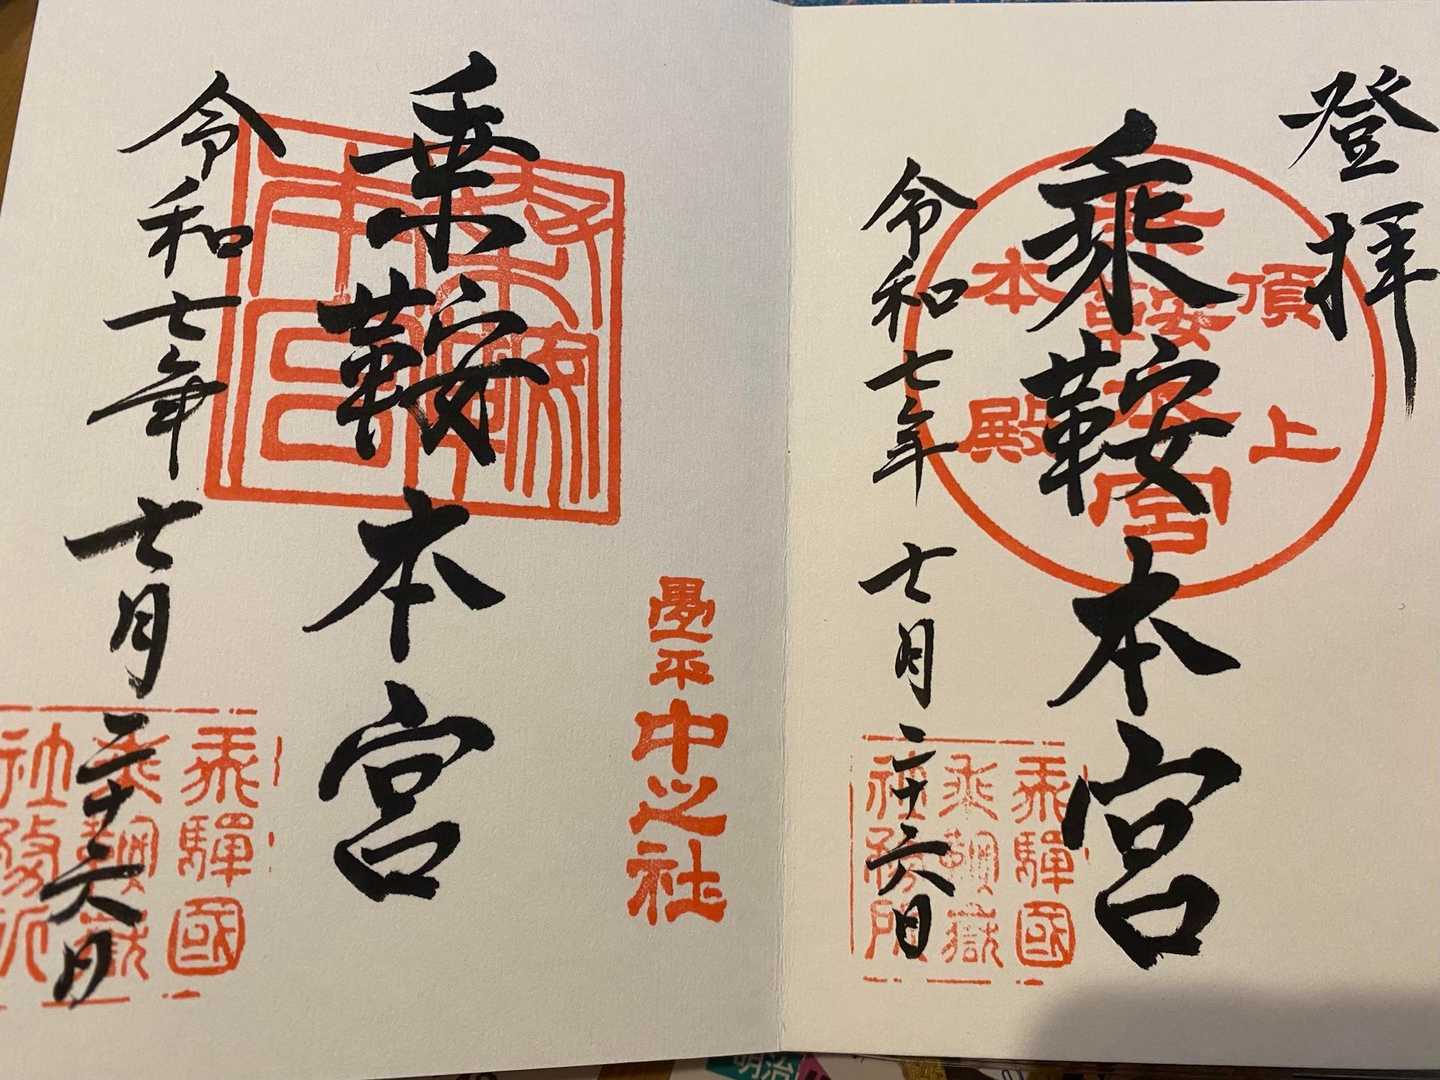 登拝
乗鞍本宮
頂上
乗鞍本宮
本殿
令和七年七月二十六日
飛騨國
乗鞍嶽
社務所
乗鞍本宮
畳平
中之社
乗鞍本宮
令和七年七月二十六日
飛騨國
乗鞍嶽
社務所
明治